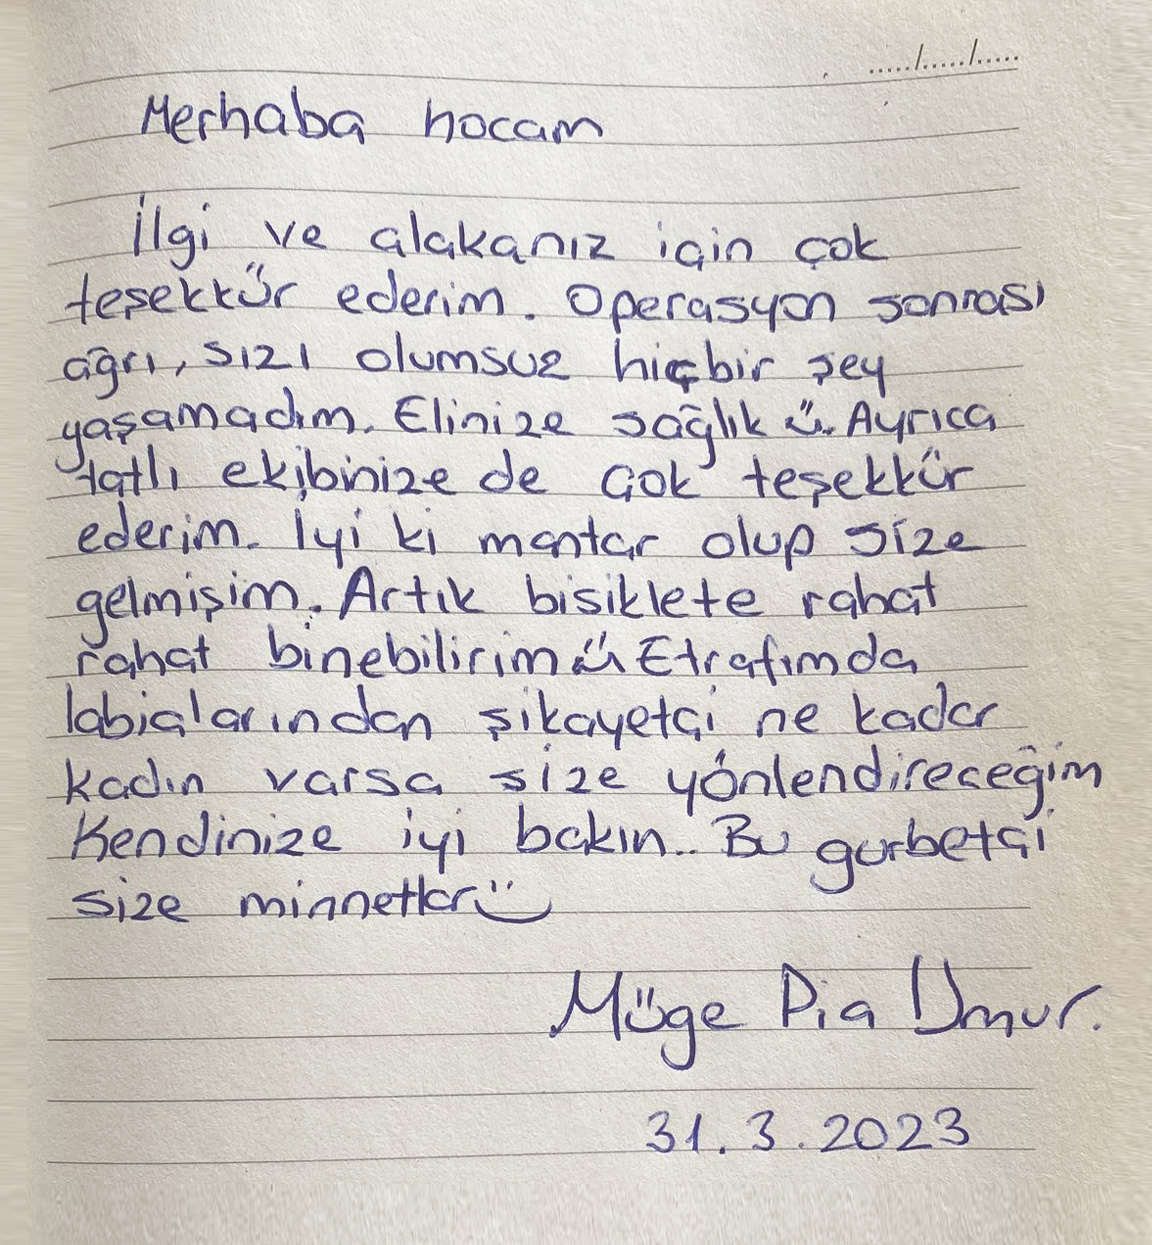 ...../...../.....
Merhaba hocam
İlgi ve alakanız için çok
teşekkür ederim. Operasyon sonrası
ağrı, sızı olumsuz hiçbir şey
yaşamadım. Elinize sağlık ü. Ayrıca
tatlı ekibinize de çok teşekkür
ederim. İyi ki mantar olup size
gelmişim. Artık bisiklete rahat
rahat binebilirim ü Etrafımda
labialarından şikayetçi ne kadar
kadın varsa size yönlendireceğim
Kendinize iyi bakın.. Bu gurbetçi
size minnettar :)
Müge Pia Umur.
31.3.2023